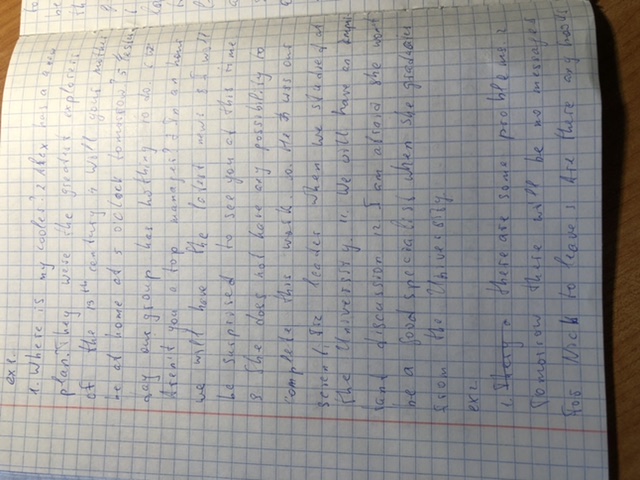 ex1.
1. Where is my cooler? 2 Alex has a new
plan. They were the greatest explorers
of the 19th century 4 Will your mother
be at home at 5 o'clock tomorrow? 5
day our group has nothing to do. 6
Aren't you a top manager? 7 In an hour
we will have the latest news 8 I will
be surprised to see you at this time
9 She does not have any possibility to
complete this work 10. He was our
scientific leader when we studied at
the University. 11. We will have an
tant discussion 12 I am afraid she won't
be a good specialist when she graduates
from the University
ex2.
1. There are some problems 2
Tomorrow there will be no messages
for Nick to leave 3 Are there any